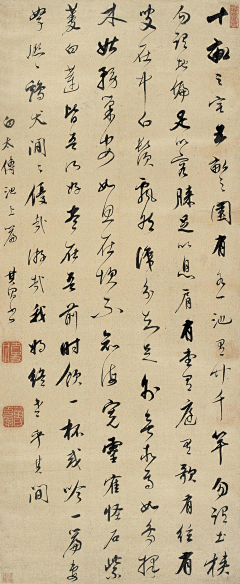 十畝之宅五畝之園有水一池有竹千竿勿謂土狹
勿謂地偏足以容膝足以息肩有堂有庭有歌有絃有
叟在中白鬚飄然識分知足外無求焉如鳥擇
木姑務巢安如龜在坎不知海寬靈隺怪石紫
菱白蓮皆吾所好盡在吾前時飲一杯或吟一篇妻
孥熙熙鷄犬閒閒優哉游哉我將終老乎其間
白太傅池上篇 其昌書